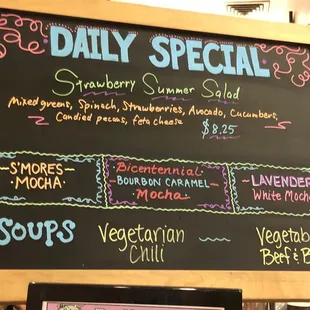 DAILY SPECIAL
Strawberry Summer Salad
Mixed greens, Spinach, Strawberries, Avocado, Cucumbers,
Candied pecans, feta cheese
$8.25
S'MORES
MOCHA
Bicentennial
BOURBON CARAMEL
Mocha
LAVENDER
White Moch
SOUPS
Vegetarian
Chili
Vegetab
Beef & B